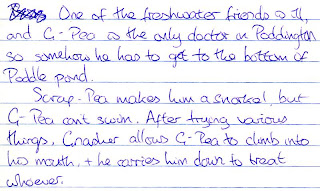 One of the freshwater friends is ill,
and G-Pea is the only doctor in Peddington
so somehow he has to get to the bottom of
Peddle pond.
Scrap-Pea makes him a snorkel, but
G-Pea cant swim. After trying various
things, Gnasher allows G-Pea to climb into
his mouth, + he carries him down to treat
whoever.